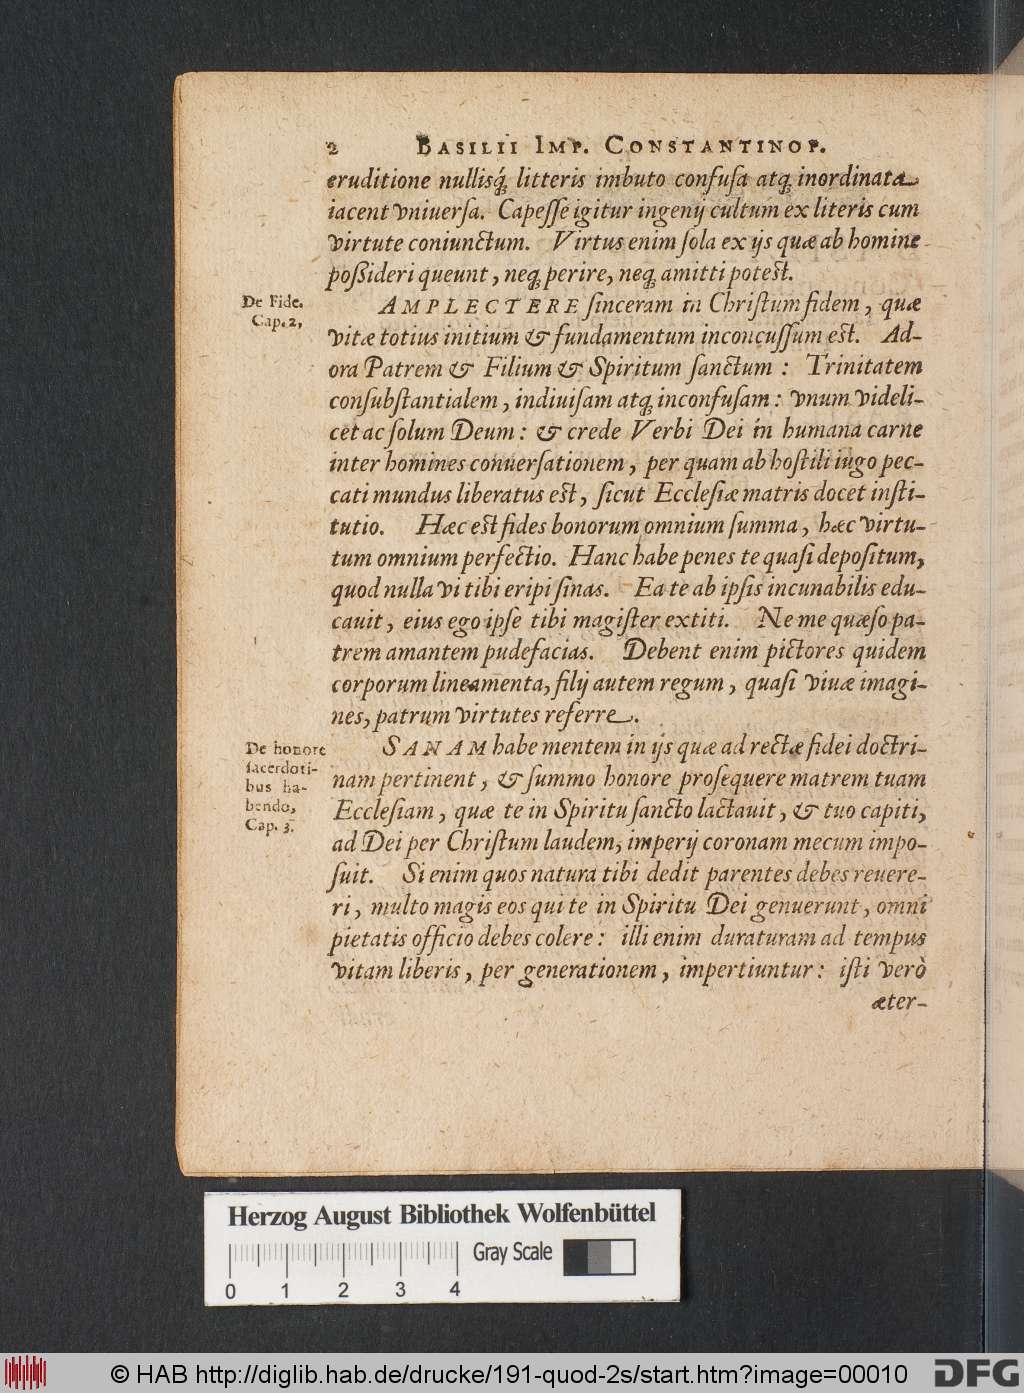 2 BASILII IMP. CONSTANTINOP.
eruditione nullisq́; litteris imbuto confusa atq; inordinata
iacent vniuersa. Capesse igitur ingenij cultum ex literis cum
virtute coniunctum. Virtus enim sola ex ijs quæ ab homine
possideri queunt, neq; perire, neq; amitti potest.
De Fide.
Cap. 2,
AMPLECTERE sinceram in Christum fidem, quæ
vitæ totius initium & fundamentum inconcussum est. Ad-
ora Patrem & Filium & Spiritum sanctum : Trinitatem
consubstantialem, indiuisam atq; inconfusam : vnum videli-
cet ac solum Deum : & crede Verbi Dei in humana carne
inter homines conuersationem, per quam ab hostili iugo pec-
cati mundus liberatus est, sicut Ecclesiæ matris docet insti-
tutio. Hæc est fides bonorum omnium summa, hæc virtu-
tum omnium perfectio. Hanc habe penes te quasi depositum,
quod nulla vi tibi eripi sinas. Ea te ab ipsis incunabilis edu-
cauit, eius ego ipse tibi magister extiti. Ne me quæso pa-
trem amantem pudefacias. Debent enim pictores quidem
corporum lineamenta, filij autem regum, quasi viuæ imagi-
nes, patrum virtutes referre.
De honore
sacerdoti-
bus ha-
bendo,
Cap. 3.
SANAM habe mentem in ijs quæ ad rectæ fidei doctri-
nam pertinent, & summo honore prosequere matrem tuam
Ecclesiam, quæ te in Spiritu sancto lactauit, & tuo capiti,
ad Dei per Christum laudem, imperij coronam mecum impo-
suit. Si enim quos natura tibi dedit parentes debes reuere-
ri, multo magis eos qui te in Spiritu Dei genuerunt, omni
pietatis officio debes colere : illi enim duraturam ad tempus
vitam liberis, per generationem, impertiuntur : isti verò
æter-
Herzog August Bibliothek Wolfenbüttel
Gray Scale
0 1 2 3 4
© HAB http://diglib.hab.de/drucke/191-quod-2s/start.htm?image=00010
DFG